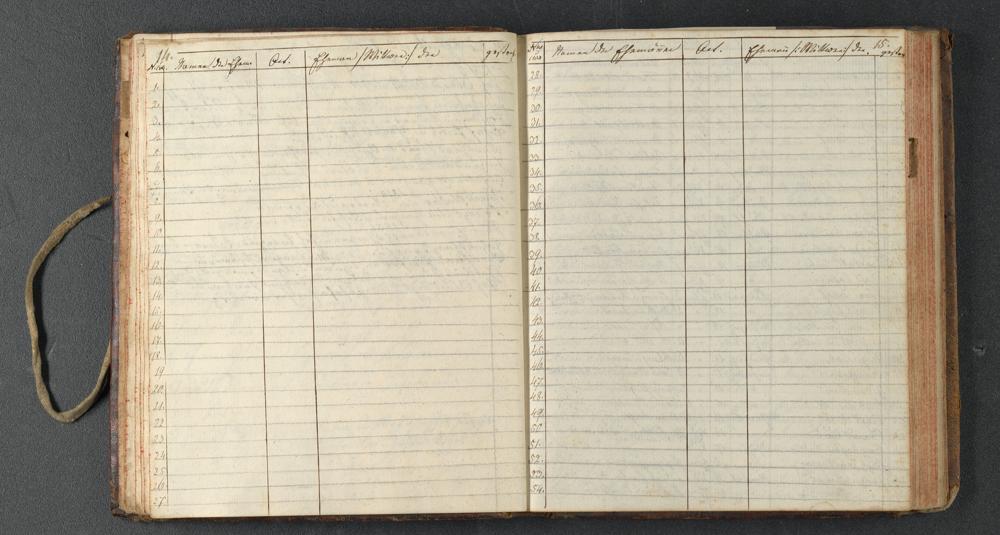 14.
Namen der Ehem
Ort.
Ehefrau / Wittwe / der
gestorb
1.
2.
3.
4.
5.
6.
7.
8.
9.
10.
11.
12.
13.
14.
15.
16.
17.
18.
19
20.
21.
22
23.
24.
25.
26.
27
15.
Namen der Ehemänner
Ort.
Ehefrau / Wittwe / der
28.
29.
30.
31.
32.
33.
34.
35.
36.
37.
38.
39.
40.
41.
42.
43.
44.
45.
46.
47.
48.
49.
50
51.
52.
53.
54.